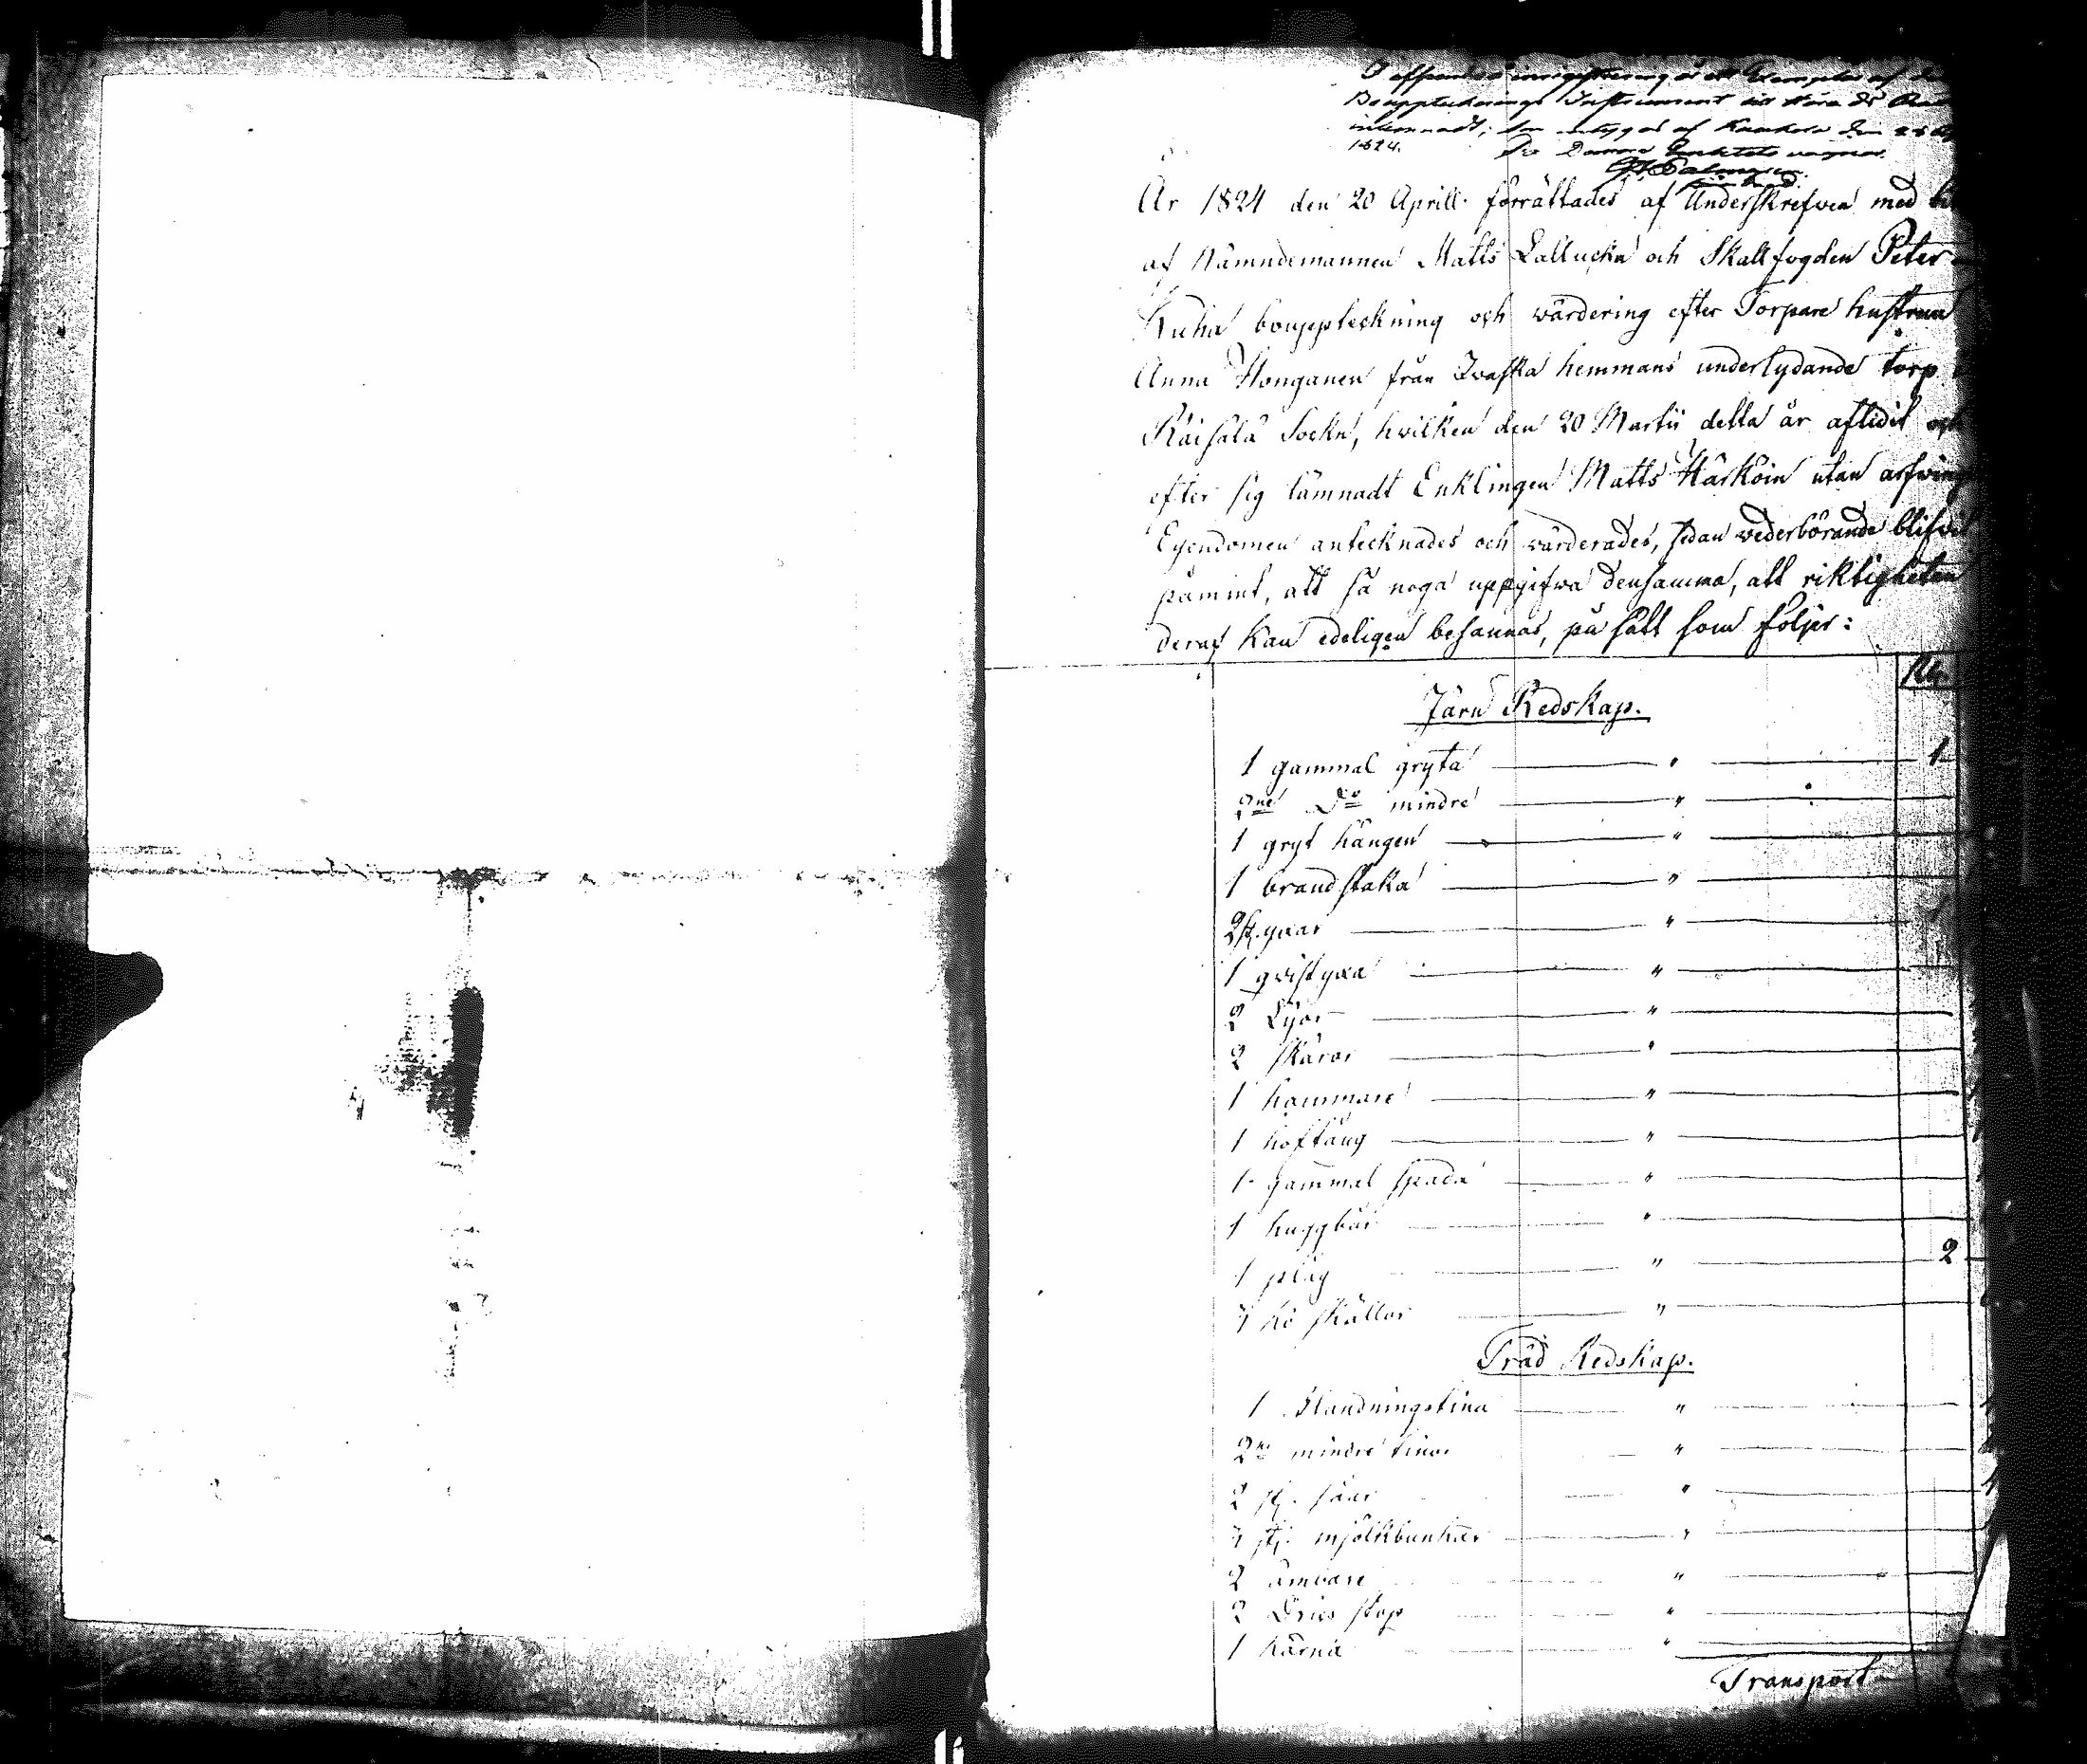 Boupptecknings Instrument
1824.
År 1824 den 20 Aprill förrättades af Underskrefven med
af Nämndemannen Matts Lallucka och Skallfogden Peter
Kuha bouppteckning och wärdering efter Torpare hustrun
Anna Honganen från Iwaska hemmans underlydande torp
Räisälä Sockn, hvilken den 20 Martii detta år aflidit och
efter sig lämnadt Enklingen Matts Härköin utan arfwing
Egendomen antecknades och wärderades, sedan vederbörande blifvit
påmint, att så noga uppgifwa densamma, att riktigheten
deraf kan edeligen besannas, på sätt som följer:
Järn Redskap.
1 gammal gryta " 1
2ne Do mindre "
1 gryt hängen "
1 brandstaka "
2 st. yxar "
1 qvistyxa "
2 Lyor "
2 skäror "
1 hammare "
1 hoftång "
1 gammal spada "
1 huggbår "
1 plog " 2
kö skällor "
Träd Redskap.
1 Blandningstina "
2ne mindre tinor "
2 st. såar "
st. mjölkbunkar "
2 ämbare "
2 Dries stop "
1 kärna "
Transport